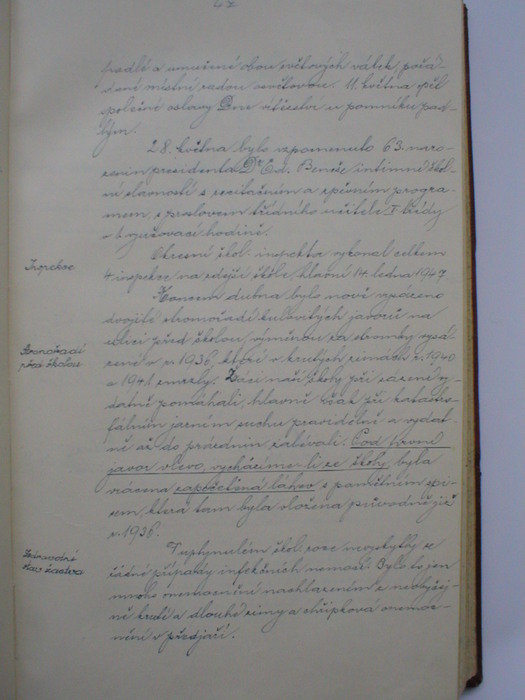 padlé a umučené obou světových válek pořá-
dané místní radou osvětovou. 11. května při
společné oslavy Dne vítězství u pomníku pad-
lým.
28. května bylo vzpomenuto 63. naro-
zenin presidenta Dr Ed. Beneše intimní škol-
ní slavností s recitačním a zpěvním progra-
mem, s proslovem třídního učitele V. třídy
v t. vyučovací hodině.
Inspekce
Okresní škol. inspektor vykonal celkem
4 inspekce na zdejší škole, hlavní 14. ledna 1947.
Stromořadí
před školou
Koncem dubna bylo nově vysázeno
dvojité stromořadí kulovitých javorů na
ulici před školou, výměnou za stromky vysá-
zené v r. 1936, které v krutých zimách r. 1940
a 1941 zmrzly. Žáci naší školy při sázení vy-
datně pomáhali, hlavně však při katastro-
fálním jarním suchu pravidelně a vydat-
ně až do prázdnin zalévali. Pod první
javor vlevo, vycházíme-li ze školy, byla
vrácena zapečetěná láhev s pamětním spi-
sem, která tam byla vložena původně již
r. 1936.
Zdravotní
stav žactva
V uplynulém škol. roce neobjevily se
žádné případy infekčních nemocí. Bylo to jen
mnoho onemocnění nachlazením z neobyčej-
ně kruté a dlouhé zimy a chřipková onemoc-
nění v předjaří.